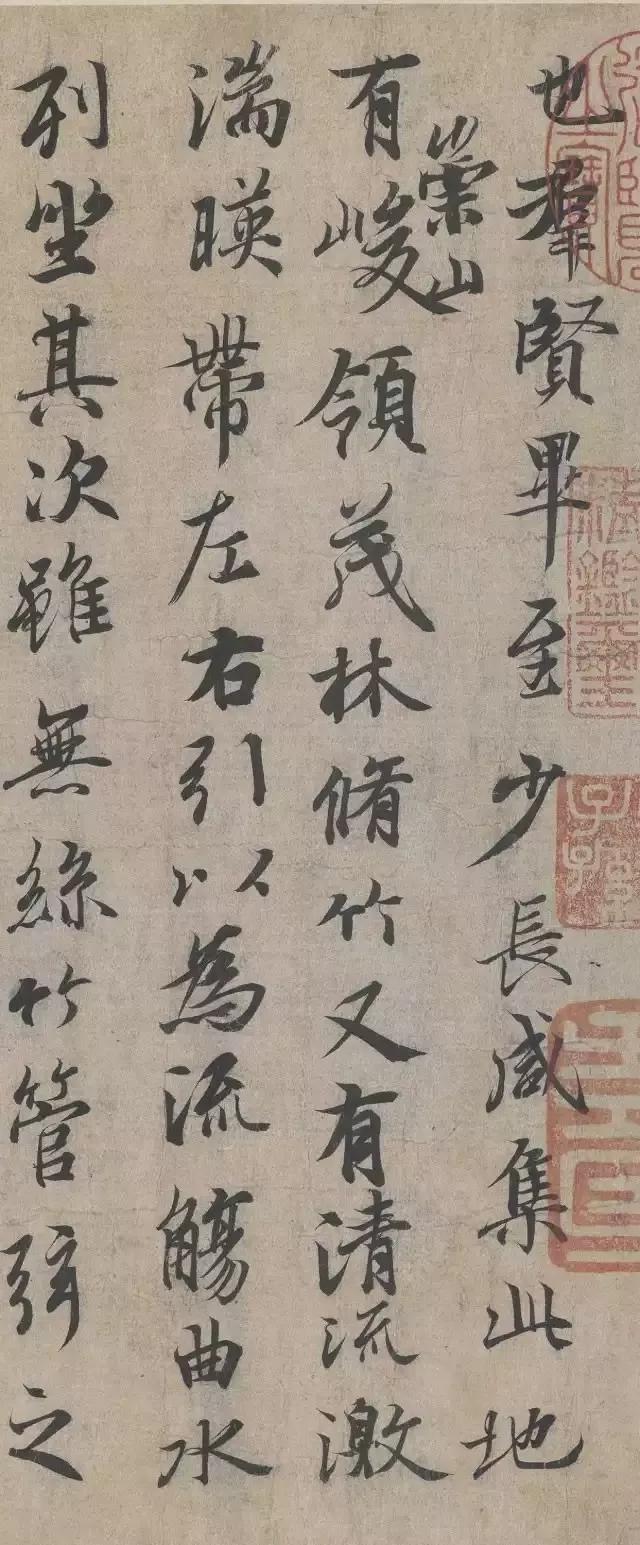 也羣賢畢至少長咸集此地
有崇山峻領茂林脩竹又有清流激
湍暎帶左右引以為流觴曲水
列坐其次雖無絲竹管弦之